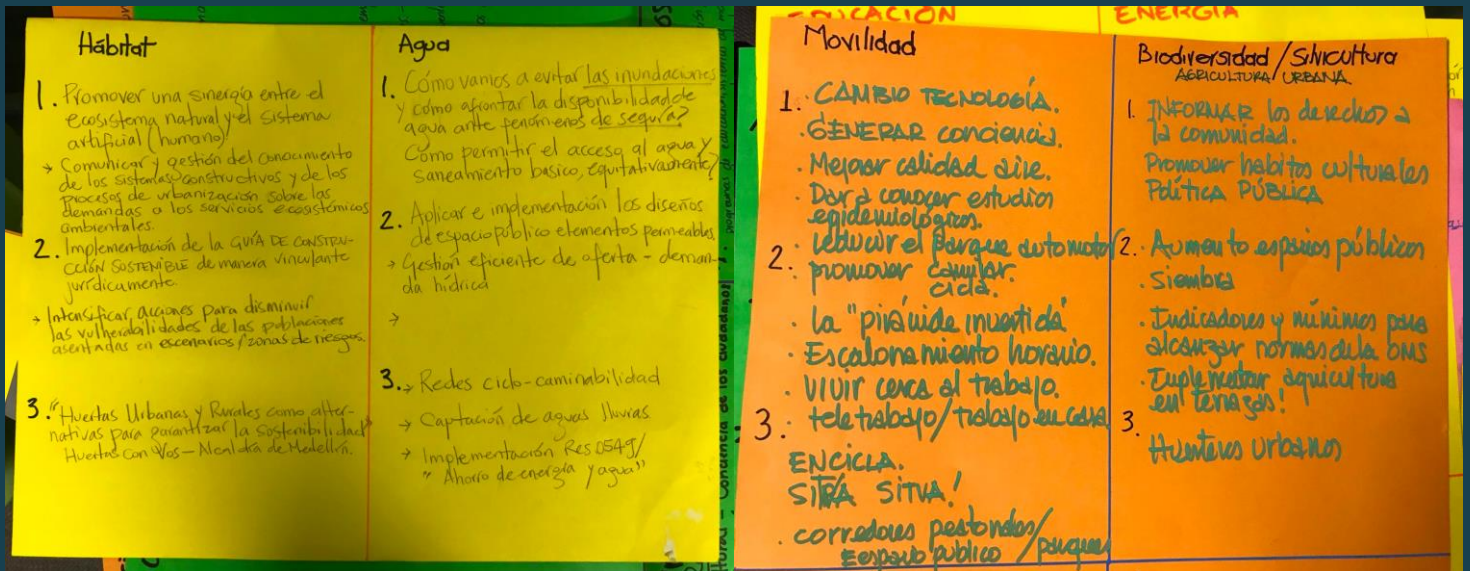 Hábitat
1. Promover una sinergia entre el
ecosistema natural y el sistema
artificial (humano)
→ Comunicar y gestión del conocimiento
de los sistemas constructivos y de los
procesos de urbanización sobre las
demandas a los servicios ecosistémicos
ambientales.
2. Implementación de la GUÍA DE CONSTRU-
CCIÓN SOSTENIBLE de manera vinculante
jurídicamente.
→ Intensificar acciones para disminuir
las vulnerabilidades de las poblaciones
asentadas en escenarios / zonas de riesgos.
3. "Huertas Urbanas y Rurales como alter-
nativas para garantizar la sostenibilidad"
Huertas con Vos - Alcaldía de Medellín.
Agua
1. Cómo vamos a evitar las inundaciones
y cómo afrontar la disponibilidad de
agua ante fenómenos de sequía?
Cómo permitir el acceso al agua y
saneamiento básico, equitativamente?
2. Aplicar e implementación los diseños
de espacio público elementos permeables.
→ Gestión eficiente de oferta - deman-
da hídrica
→
3. → Redes ciclo-caminabilidad
→ Captación de aguas lluvias
→ Implementación Res 0549/
"Ahorro de energía y agua"
Conciencia de los ciudadanos
EDUCACIÓN
ENERGÍA
Movilidad
1. · CAMBIO TECNOLOGÍA.
· GENERAR conciencia.
· Mejorar calidad aire.
· Dar a conocer estudios
epidemiológicos.
· reducir el parque automotor
2. · promover caminar.
cicla.
· La "pirámide invertida"
· Escalonamiento horario.
· VIVIR cerca al trabajo.
3. · teletrabajo/trabajo en casa
ENCICLA.
SITVA!
· corredores peatonales/
Espacio público / parques
Biodiversidad / Silvicultura
AGRICULTURA URBANA
1. INFORMAR los derechos a
la comunidad.
Promover hábitos culturales
Política PÚBLICA
2. · Aumento espacios públicos
· Siembra
· Indicadores y mínimos para
alcanzar normas de la OMS
· Implementar agricultura
en terrazas!
3.
Huerteros urbanos